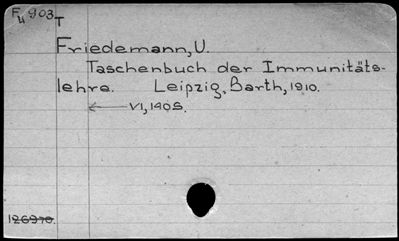 Fu 903 T
Friedemann, U.
Taschenbuch der Immunitäts-
lehre. Leipzig, Barth, 1910.
VI, 140 S.
126970.